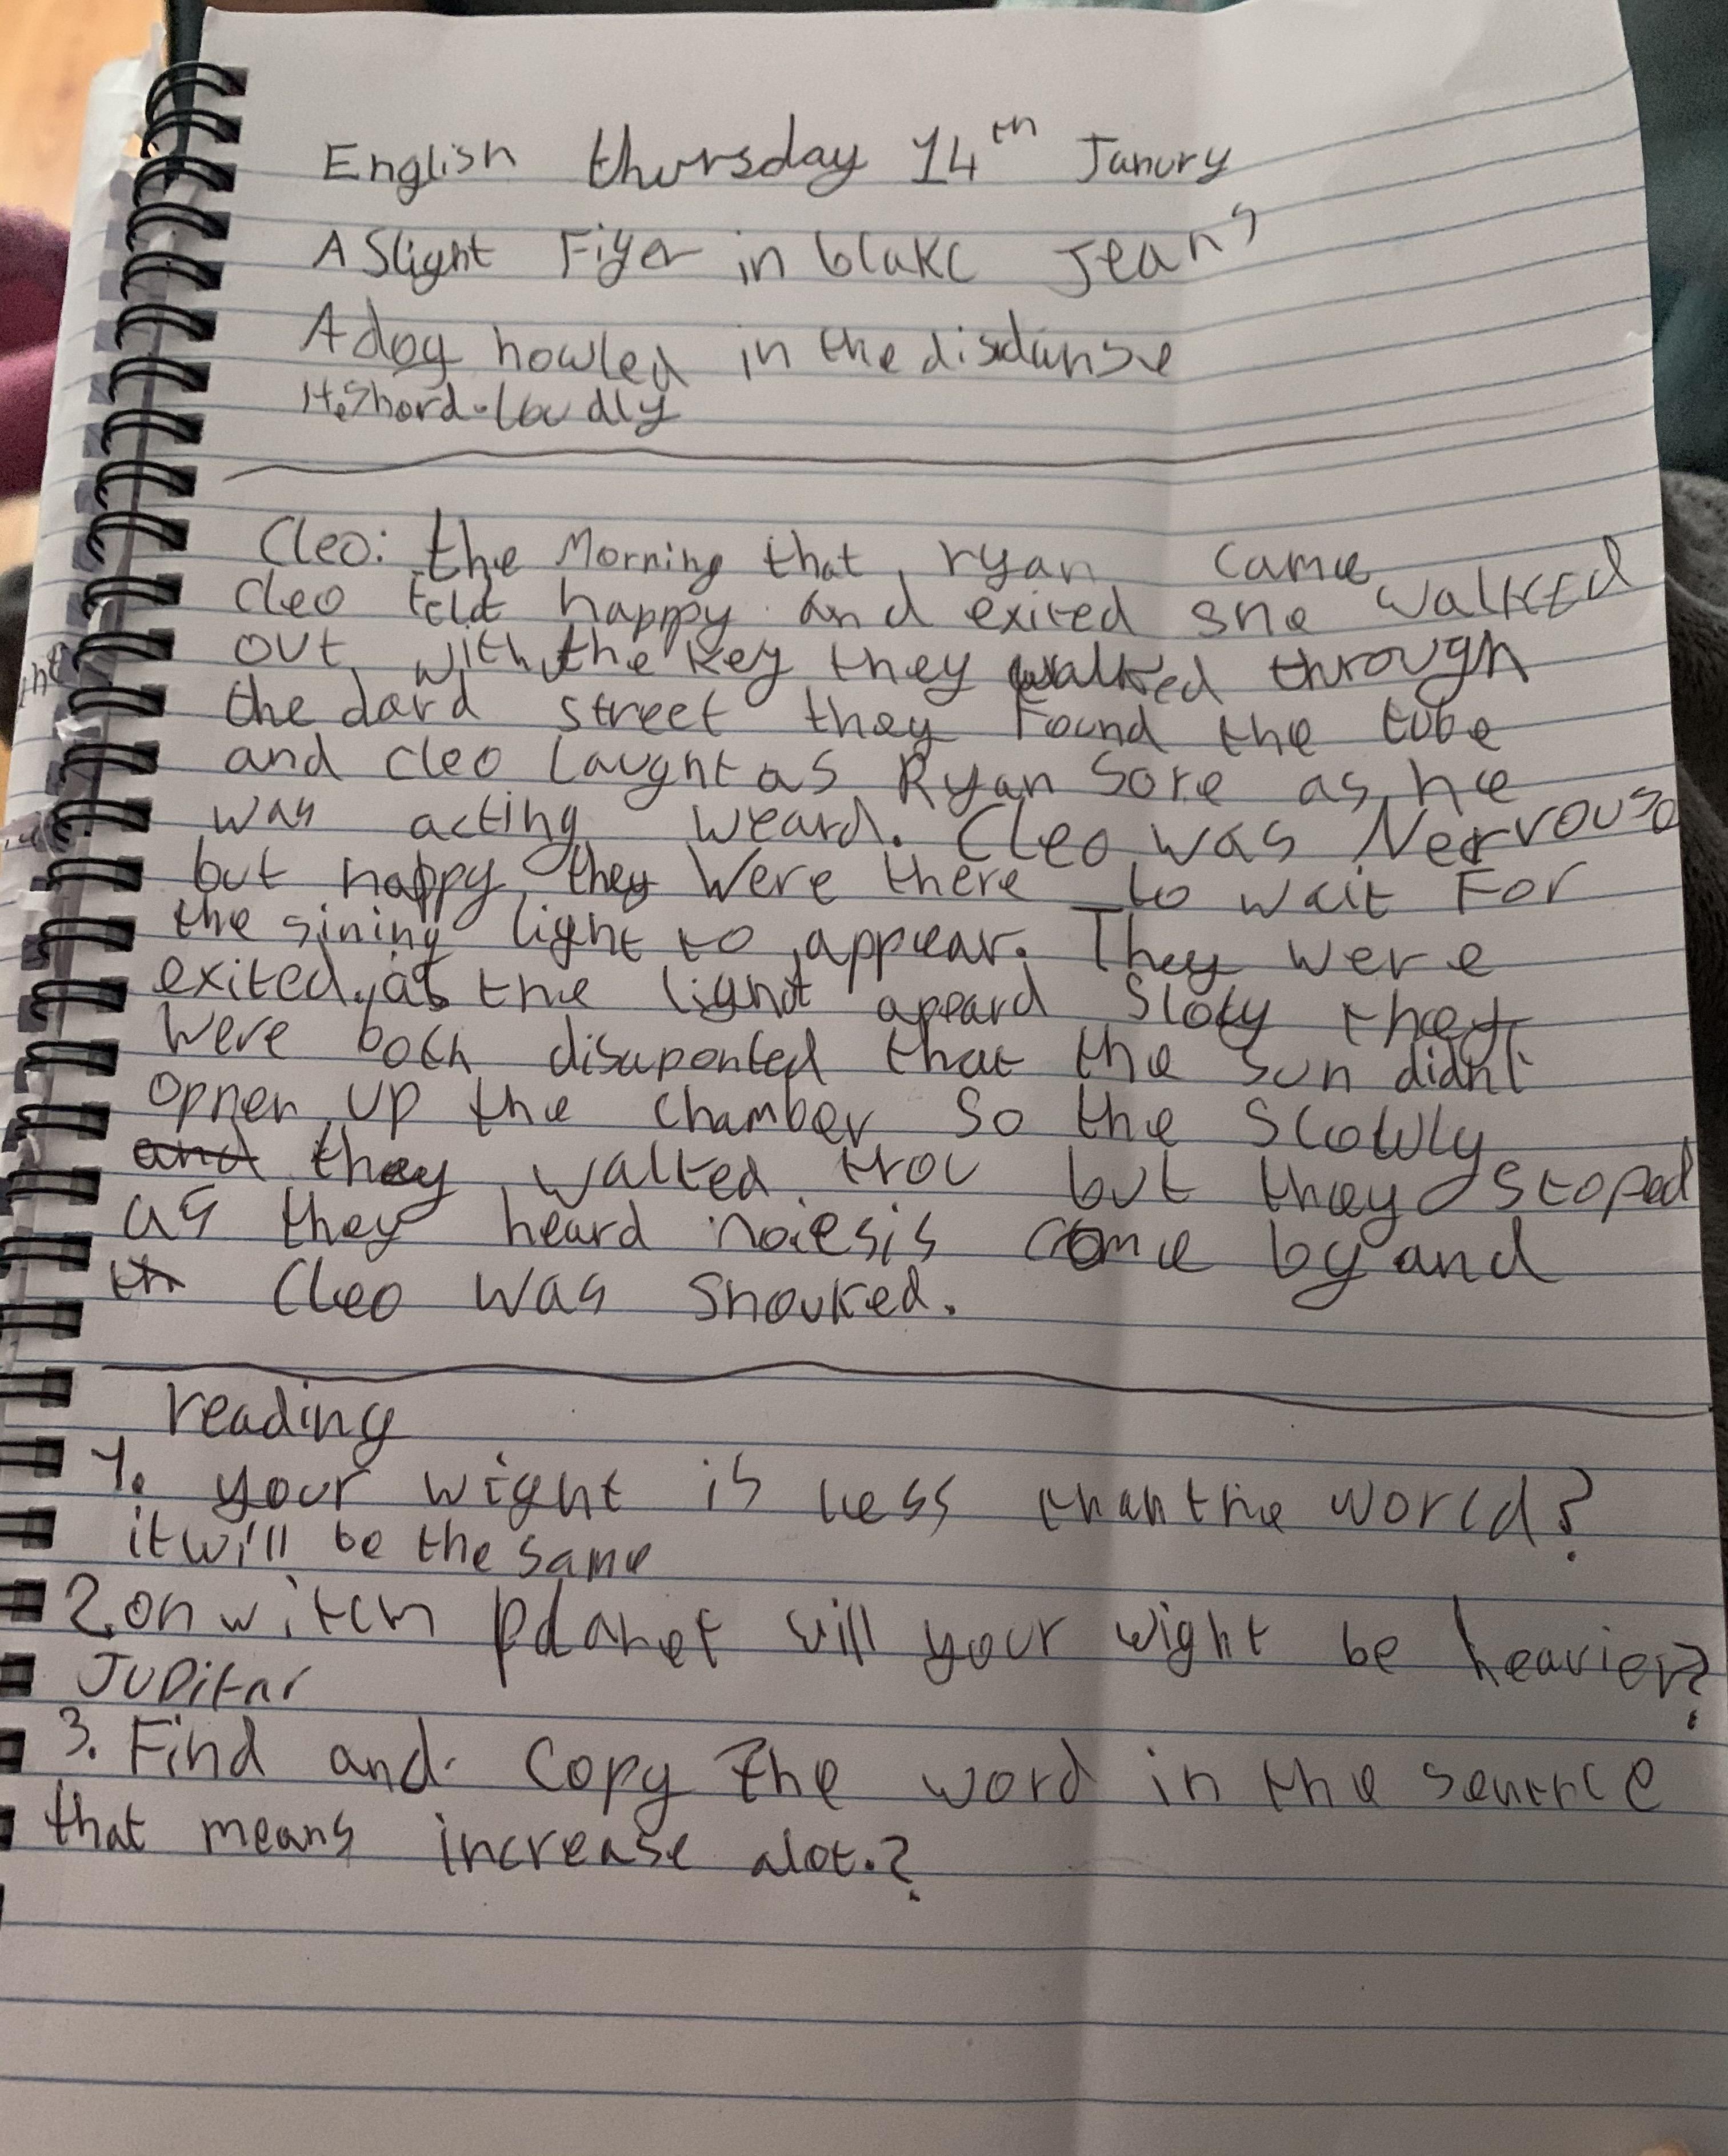 English thursday 14th Janury
A Slight Fiyer in blakc Jeans
A dog howled in the disdanse
He Shord loudly
Cleo: the Morning that ryan came
cleo feld happy and exited she walked
out with the key they walked through
the dard street they Found the tube
and cleo laught as Ryan Sore as he
was acting weard. Cleo was Nervous
but happy they Were there to wait For
the sining light to appear. They were
exited as the light apeard Sloly they
were both disaponted that the sun didnt
opner up the chamber so the Slowly
and they walked trou but they stoped
as they heard noiesis come by and
th Cleo was shouked.
reading
1. your wight is less than the world?
it will be the same
2. on witch planet will your wight be heavier?
Jupitar
3. Find and copy The word in the sentnce
that means increase alot.?